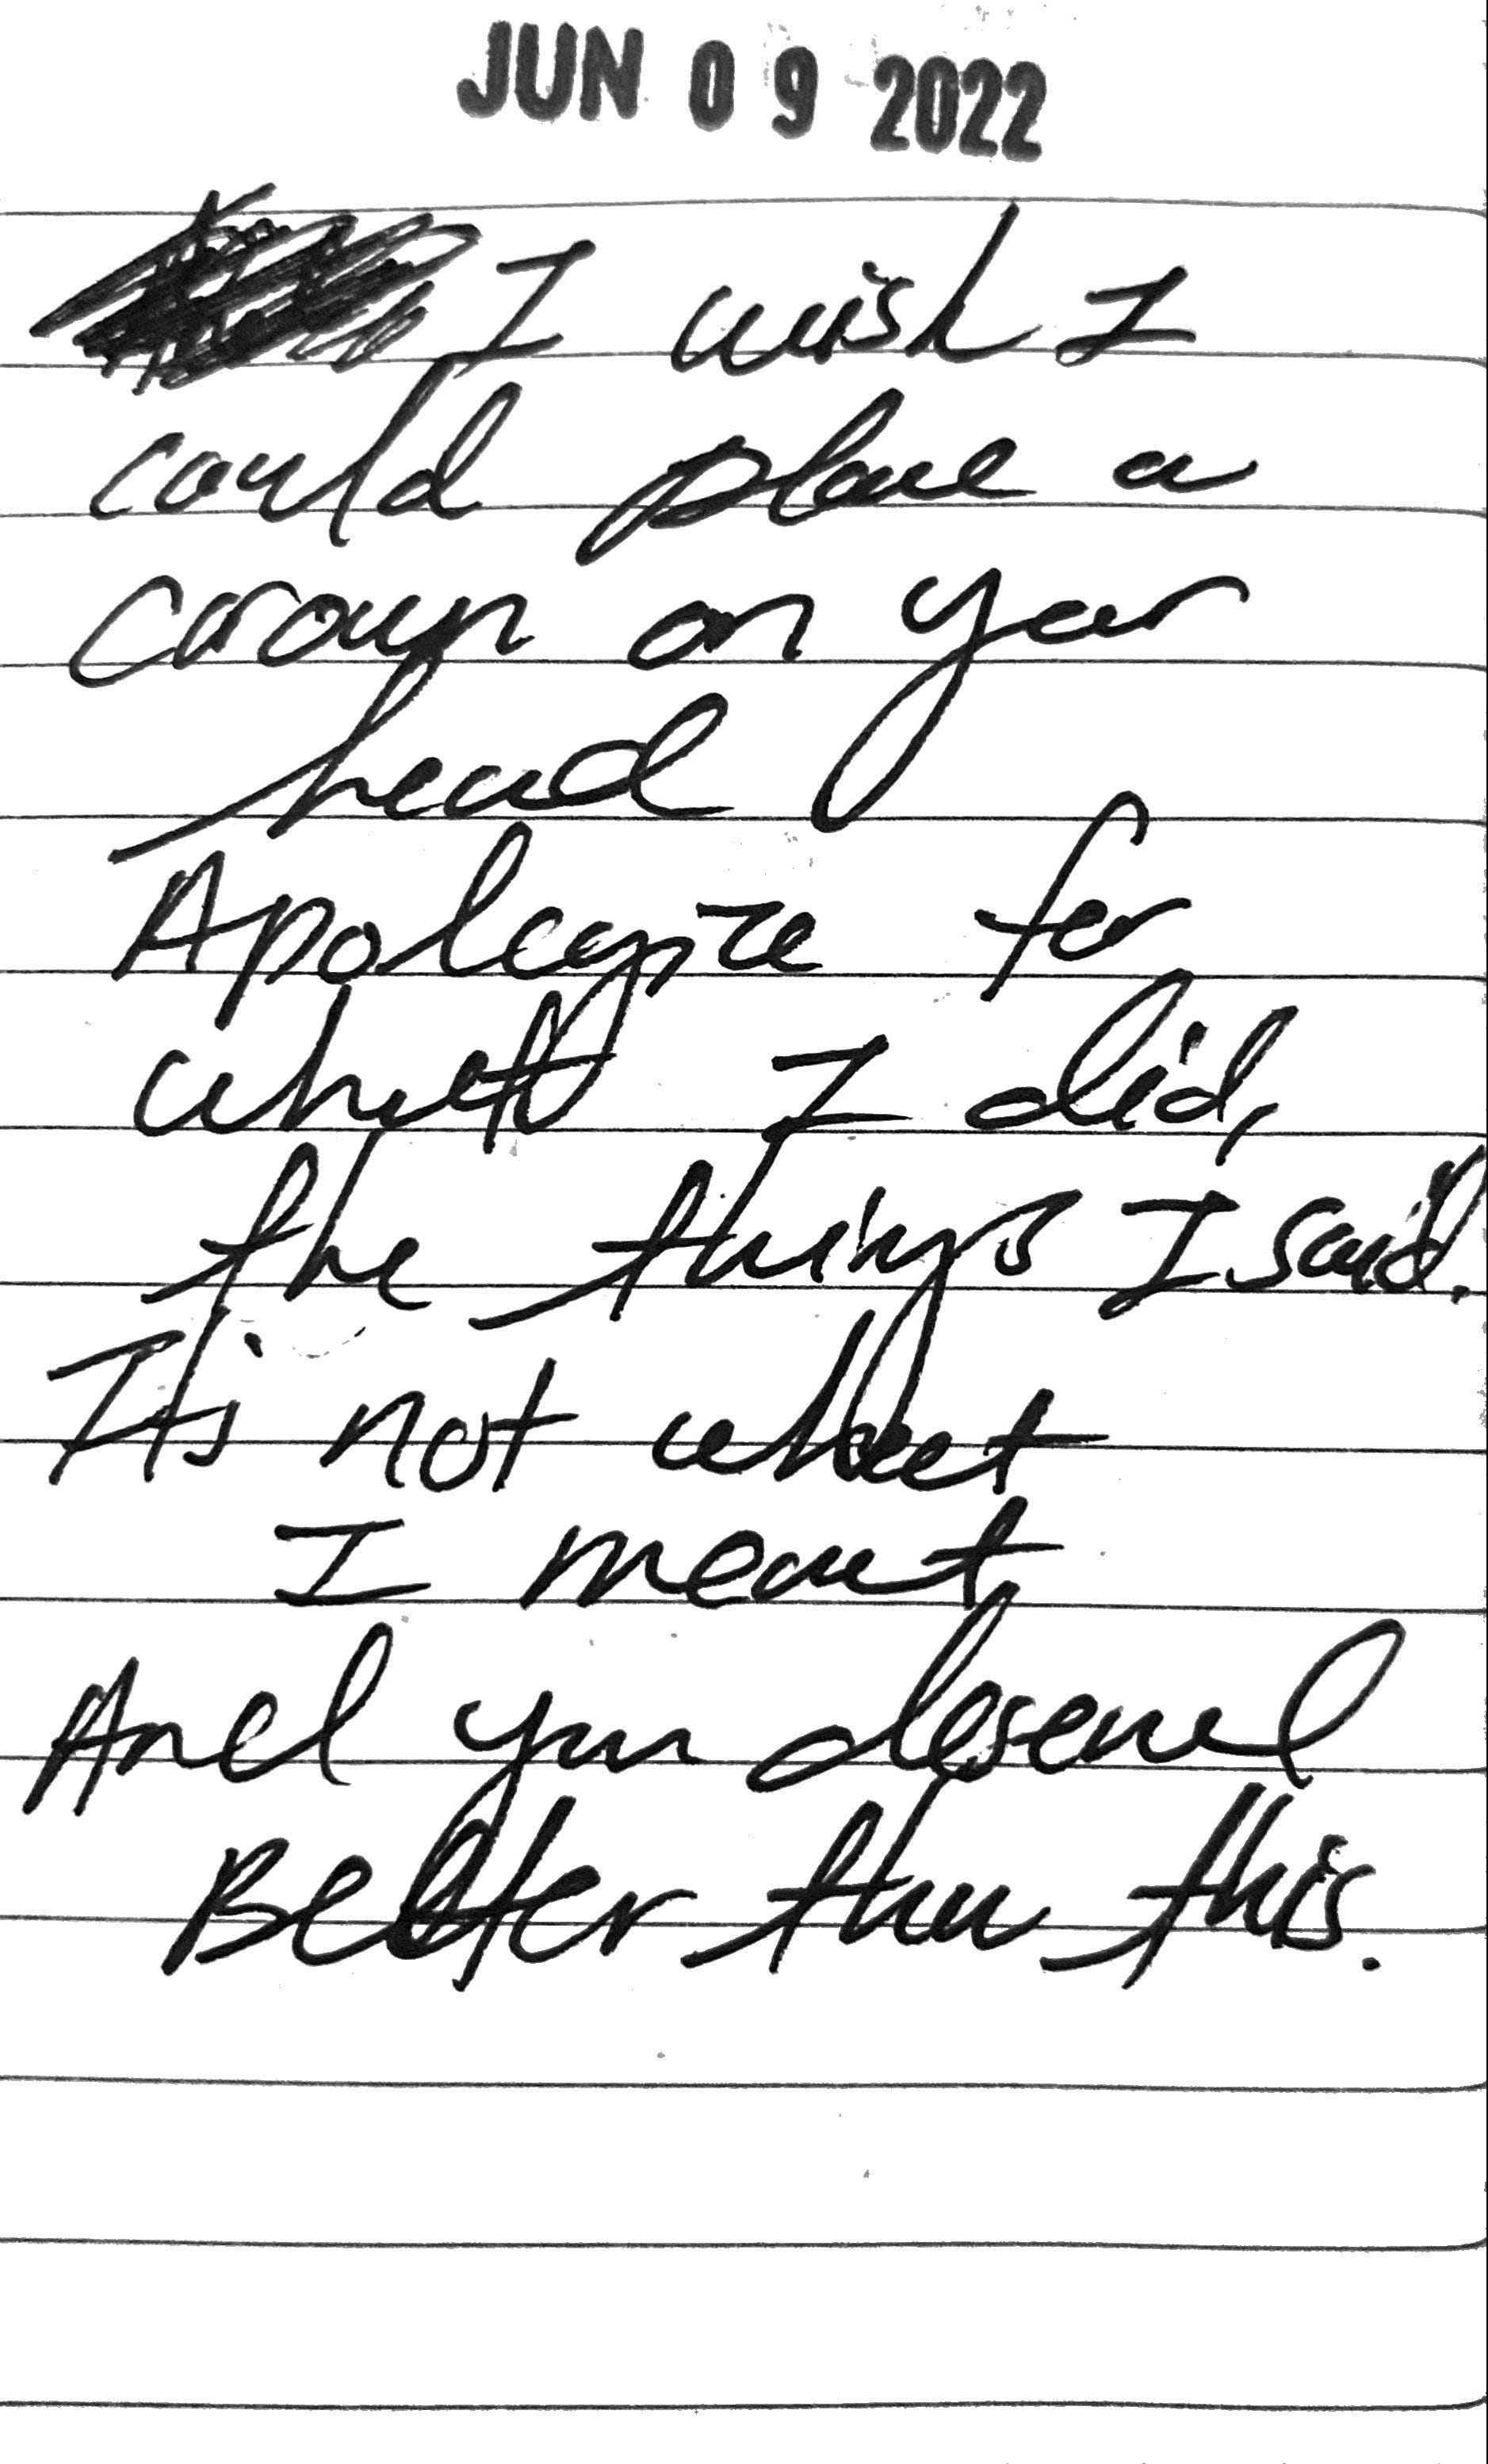 JUN 09 2022
I wish I
could place a
crown on your
head
Apologize for
what I did,
the things I said.
It's not what
I meant,
And you deserved
Better than this.